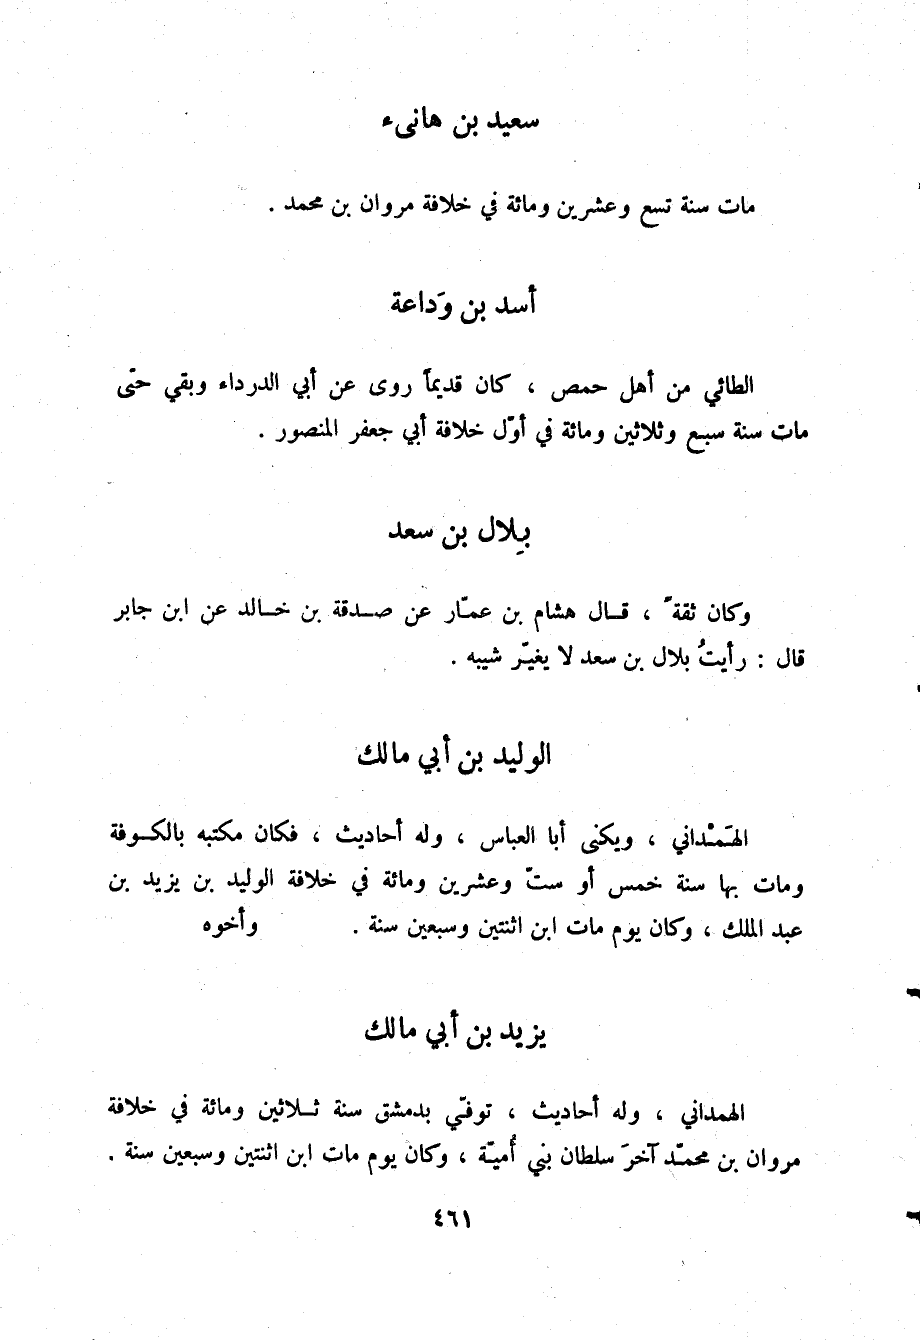 سعيد بن هانىء
مات سنة تسع وعشرين ومائة في خلافة مروان بن محمد .
أسد بن وَداعة
الطائي من أهل حمص ، كان قديماً روى عن أبي الدرداء وبقي حتّى
مات سنة سبع وثلاثين ومائة في أوّل خلافة أبي جعفر المنصور .
بِلال بن سعد
وكان ثقةً ، قال هشام بن عمّار عن صدقة بن خالد عن ابن جابر
قال : رأيتُ بلال بن سعد لا يغيّر شيبه .
الوليد بن أبي مالك
الهَمْداني ، ويكنى أبا العباس ، وله أحاديث ، فكان مكتبه بالكوفة
ومات بها سنة خمس أو ستّ وعشرين ومائة في خلافة الوليد بن يزيد بن
عبد الملك ، وكان يوم مات ابن اثنتين وسبعين سنة . وأخوه
يزيد بن أبي مالك
الهمداني ، وله أحاديث ، توفّي بدمشق سنة ثلاثين ومائة في خلافة
مروان بن محمّد آخرَ سلطان بني أُميّة ، وكان يوم مات ابن اثنتين وسبعين سنة .
٤٦١